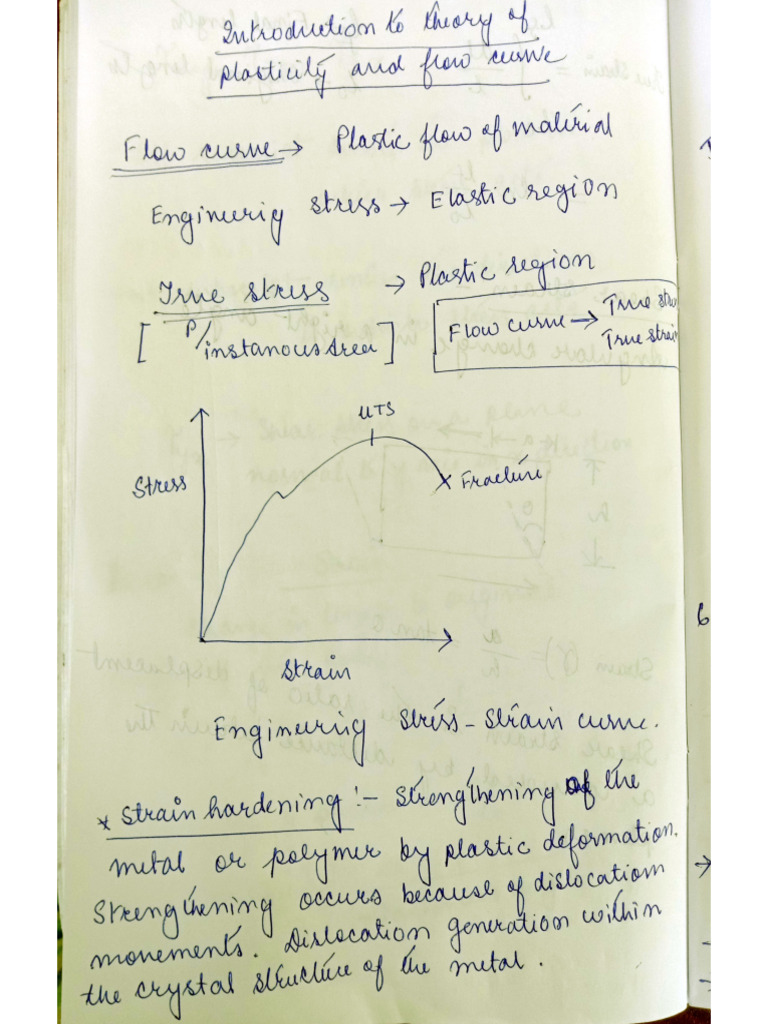 Introduction to theory of
plasticity and flow curve
Flow curve → Plastic flow of material
Enginerig stress → Elastic region
True stress → Plastic region
[ P/instanous Area ]
Flow curve → True
True
UTS
Stress
Fracture
Strain
Engineering stress - strain curve.
* Strain hardening :- Strengthening of the
metal or polymer by plastic deformation.
Strengthening occurs because of dislocation
movements. Dislocation generation within
the crystal structure of the metal.
6